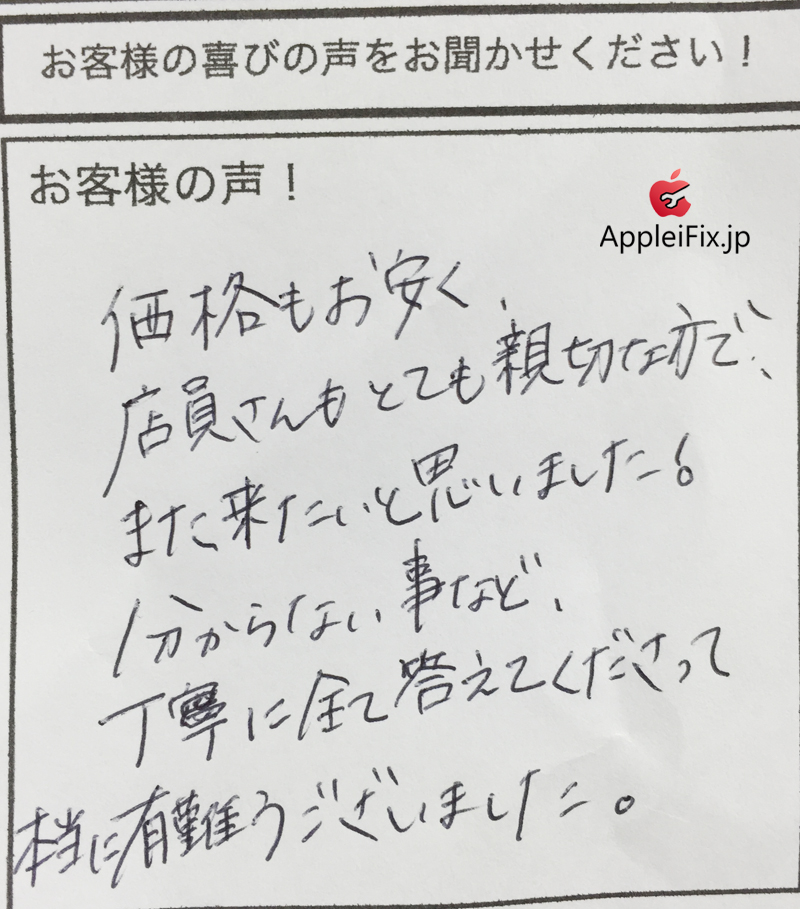 お客様の喜びの声をお聞かせください！
お客様の声！
AppleiFix.jp
価格もお安く、
店員さんもとても親切な方で、
また来たいと思いました。
分からない事など、
丁寧に全て答えてくださって
本当に有難うございました。